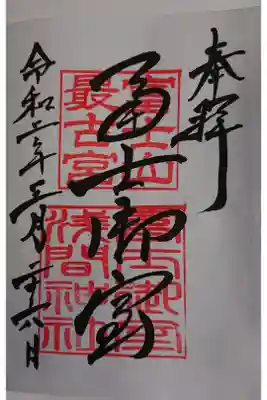 奉拝
冨士御室
富士山
最古宮
冨士御室
浅間神社
令和二年三月二十八日